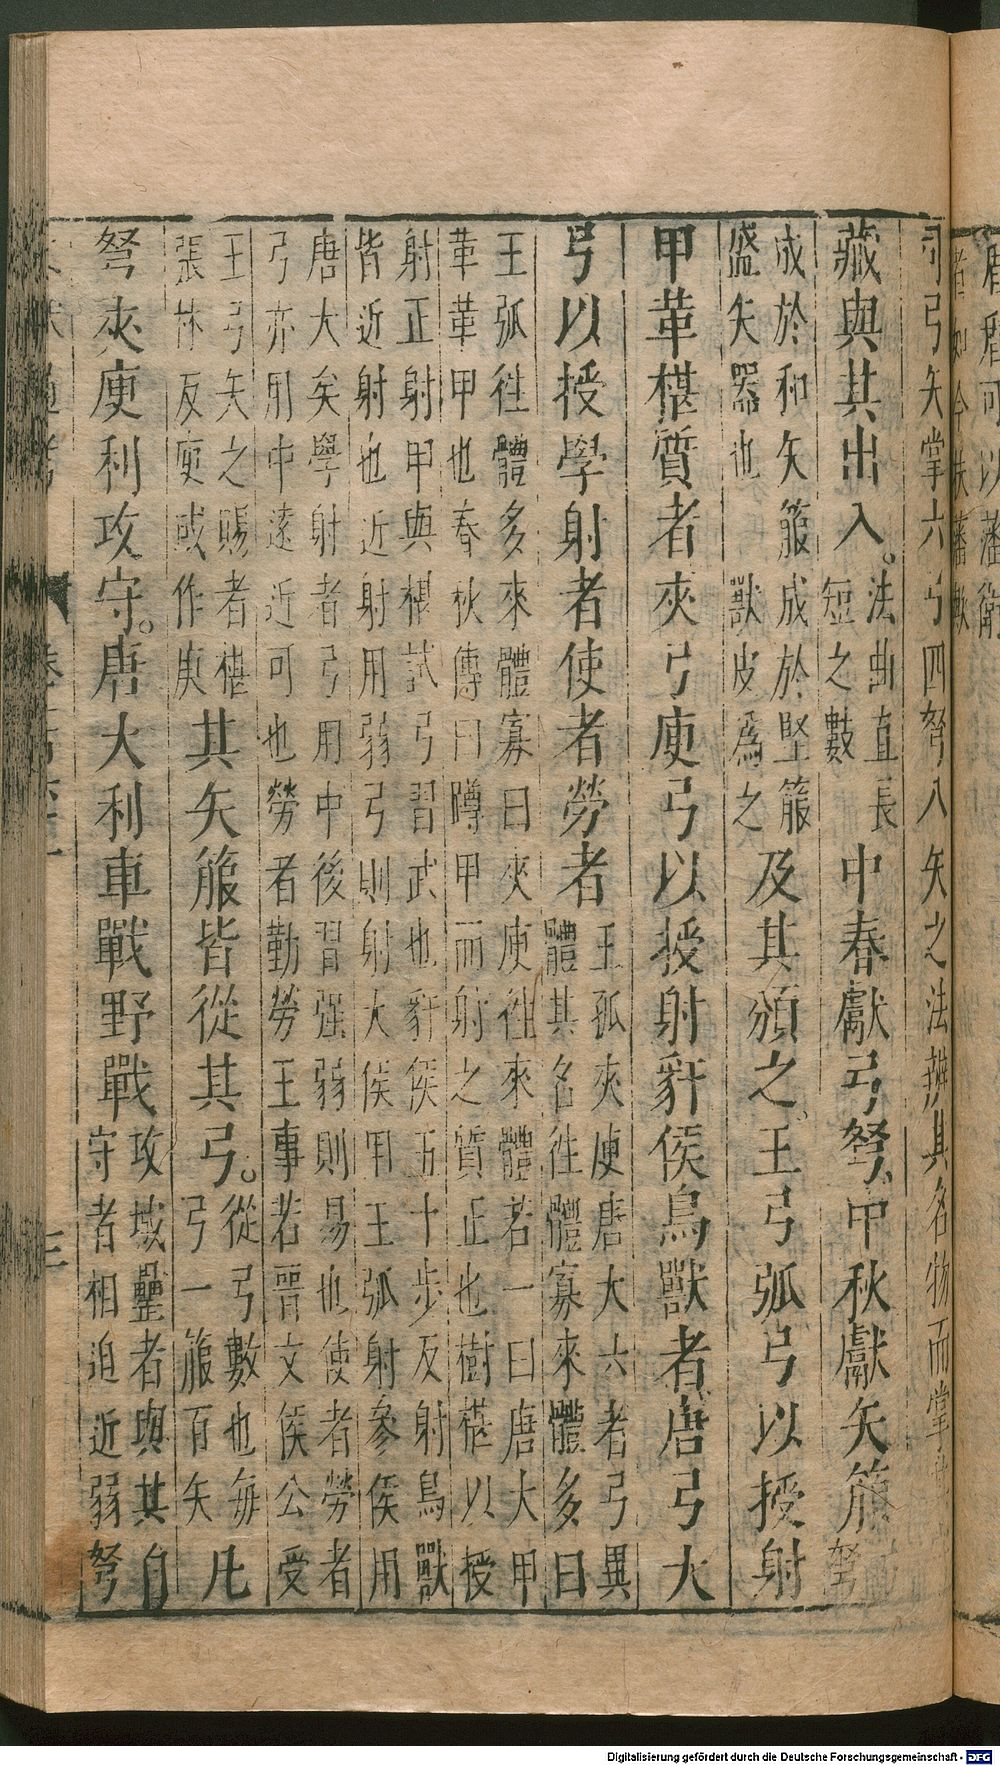 可以藩衛
者如今扶藩歟
司弓矢掌六弓四弩八矢之法辨其名物而掌
藏與其出入。
法曲直長
短之數
中春獻弓弩中秋獻矢箙
弩
成於和矢箙成於堅箙
盛矢器也獸皮爲之
及其頒之王弓弧弓以授射
甲革椹質者夾弓庾弓以授射豻侯鳥獸者唐弓大
弓以授學射者使者勞者
王孤夾庾唐大六者弓異
體其名徃體寡來體多曰
王弧徃體多來體寡曰夾庾徃來體若一曰唐大甲
革革甲也春秋傳曰蹲甲而射之質正也樹椹以授
射正射甲與椹試弓習武也豻侯五十步及射鳥獸
皆近射也近射用弱弓則射大侯用王弧射參侯用
唐大矣學射者弓用中後習强弱則易也使者勞者
弓亦用中遠近可也勞者勤勞王事若晉文侯公受
王弓矢之賜者椹
張林反庾或作庚
其矢箙皆從其弓。
從弓數也每
弓一箙百矢
凡
弩夾庾利攻守。唐大利車戰野戰
攻城壘者與其自
守者相迫近弱弩
三
Digitalisierung gefördert durch die Deutsche Forschungsgemeinschaft - DFG